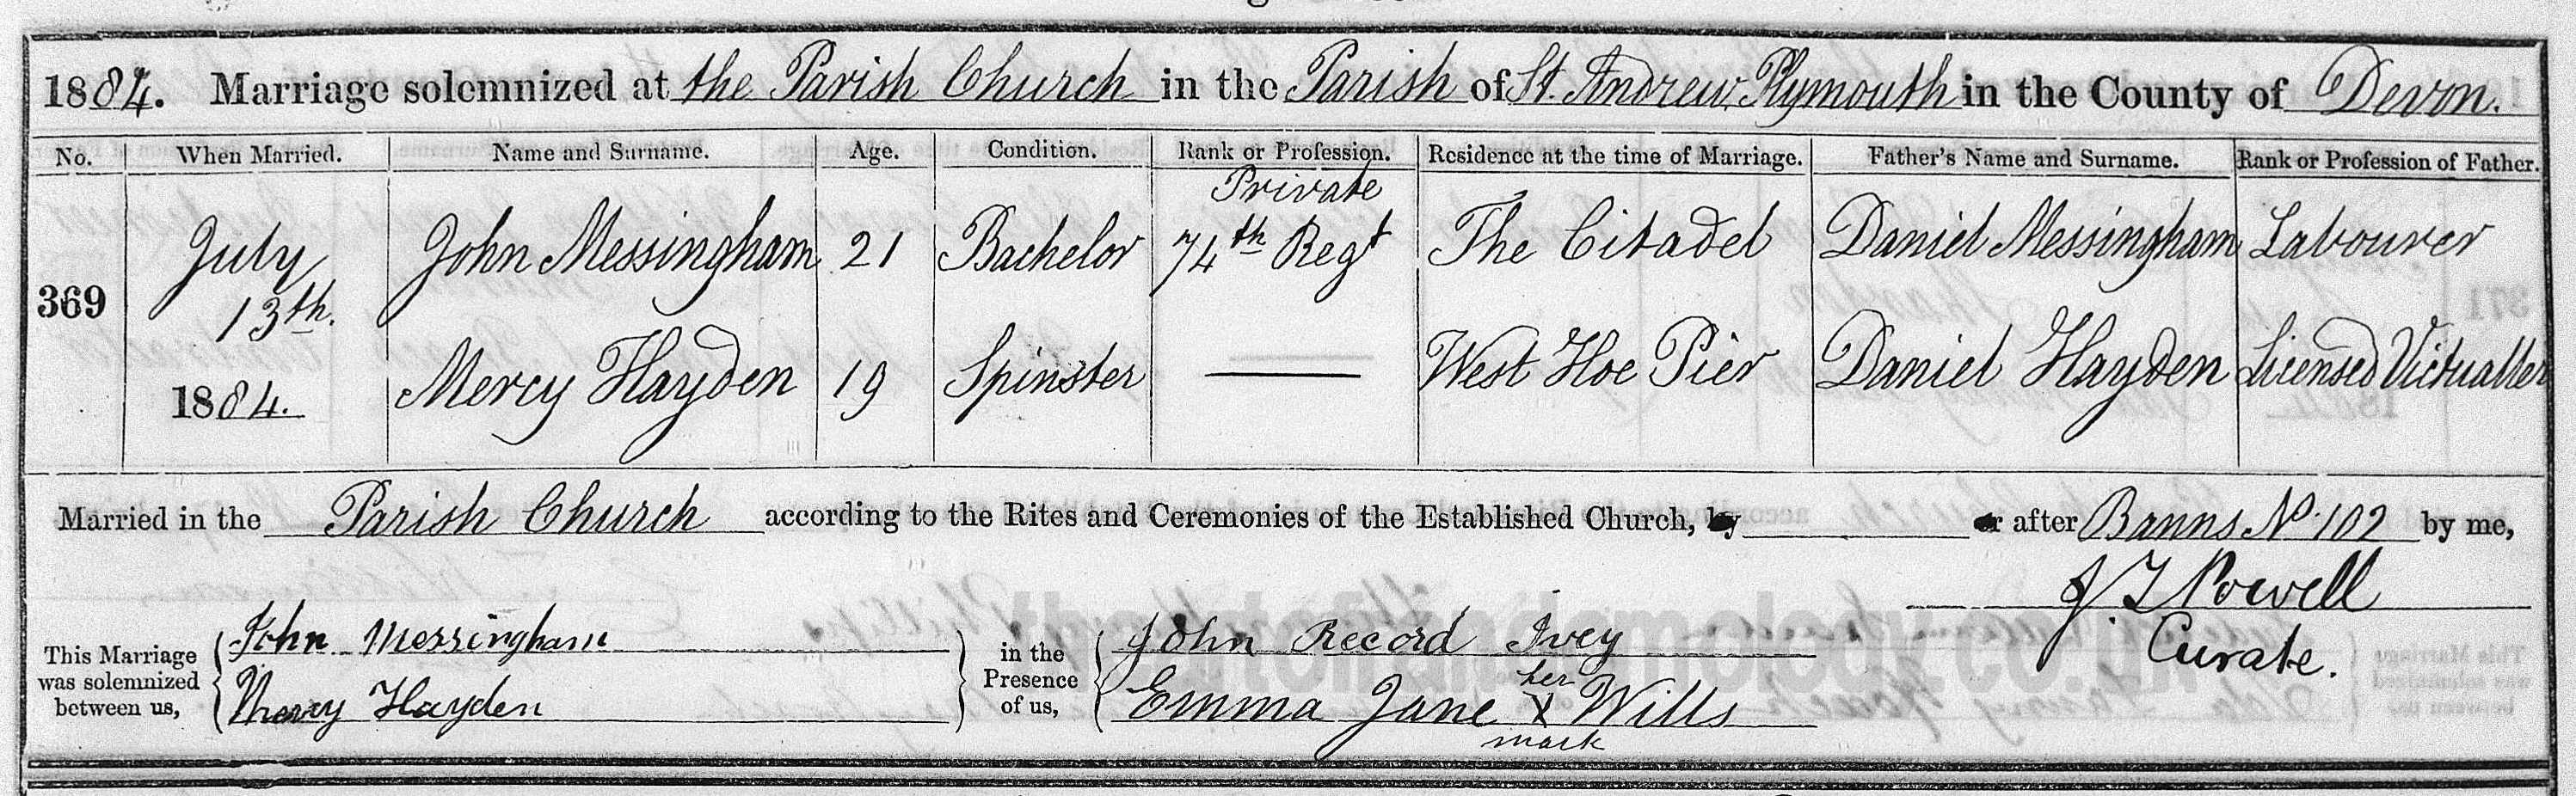 1884. Marriage solemnized at the Parish Church in the Parish of St. Andrew Plymouth in the County of Devon.
No. When Married. Name and Surname. Age. Condition. Rank or Profession. Residence at the time of Marriage. Father's Name and Surname. Rank or Profession of Father.
369 July 13th. 1884.
John Messingham 21 Bachelor Private 74th Regt The Citadel Daniel Messingham Labourer
Mercy Hayden 19 Spinster West Hoe Pier Daniel Hayden Licensed Victualler
Married in the Parish Church according to the Rites and Ceremonies of the Established Church, by or after Banns No. 102 by me,
J T Powell
Curate.
This Marriage was solemnized between us,
John Messingham
Mercy Hayden
in the Presence of us,
John Record Ivey
Emma Jane X Wills
her
mark
theartofandemology.co.uk